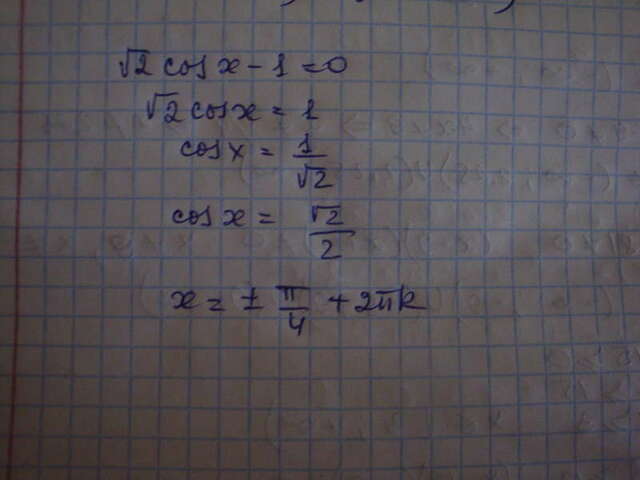 √2 cos x - 1 = 0
√2 cos x = 1
cos x = 1/√2
cos x = √2/2
x = ± π/4 + 2πk